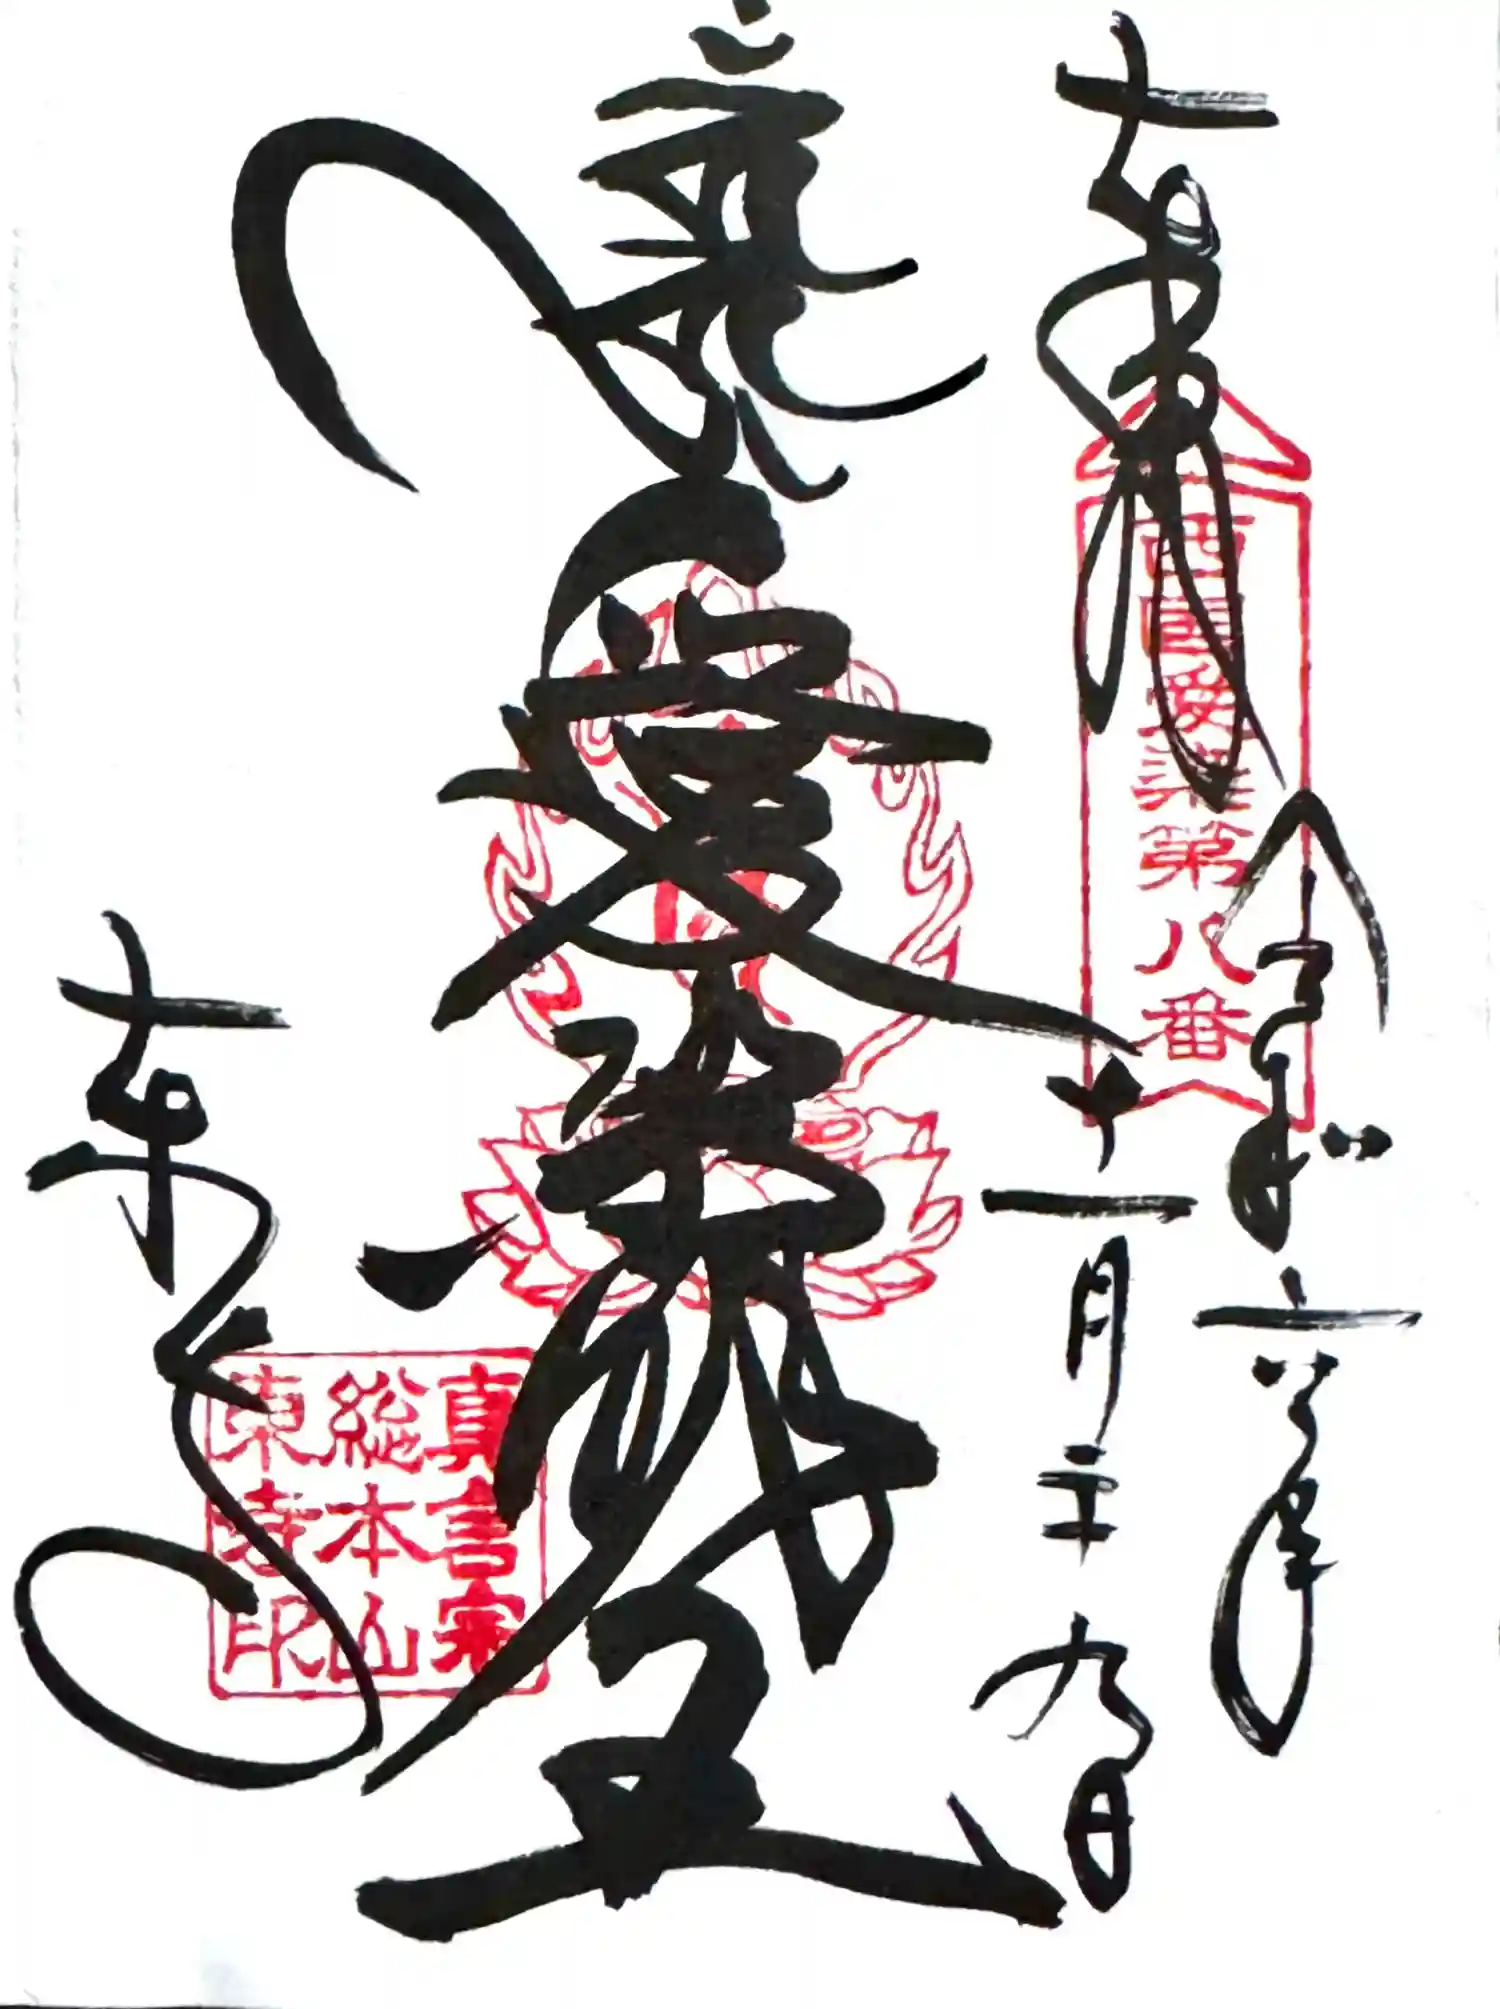 奉拝
西国愛染第八番
令和六年
十一月二十九日
愛染明王
東寺
真言宗
総本山
東寺印